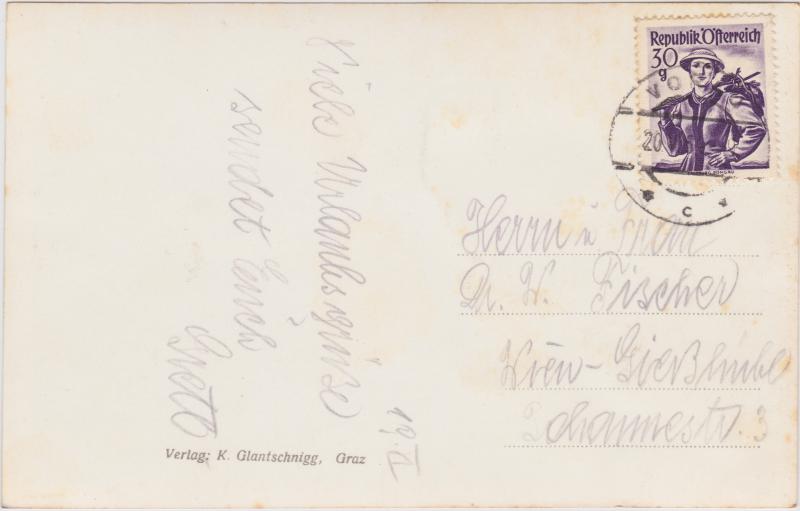 Viele Urlaubsgrüße
sendet Euch
Gretl
19. II
Verlag: K. Glantschnigg, Graz
Republik Österreich
30
g
VO
20
C
Herrn u Frau
Dr. W. Fischer
Wien - Gießhübl
Johannesstr. 3